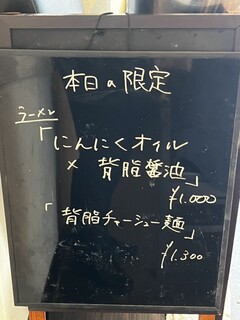 本日の限定
ラーメン
「にんにくオイル
× 背脂醤油」
¥1.000
「背脂チャーシュー麺」
¥1.300